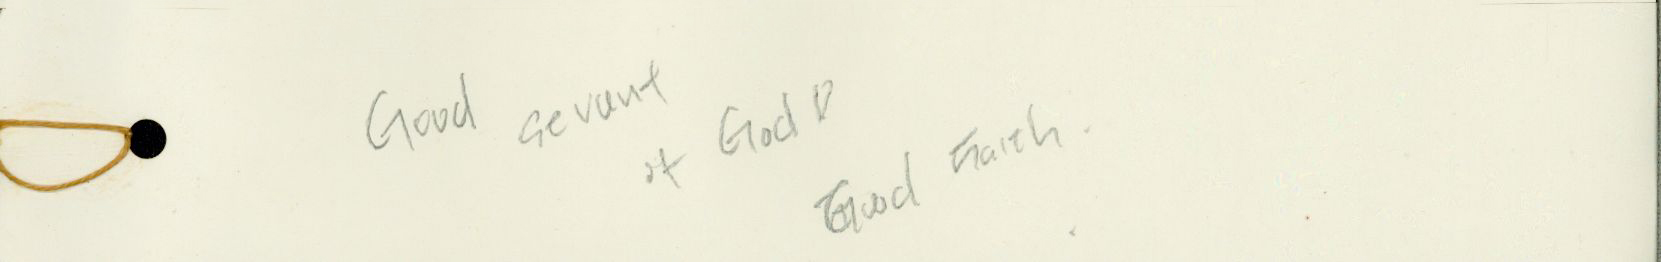 Good servant
of God
Good Faith.